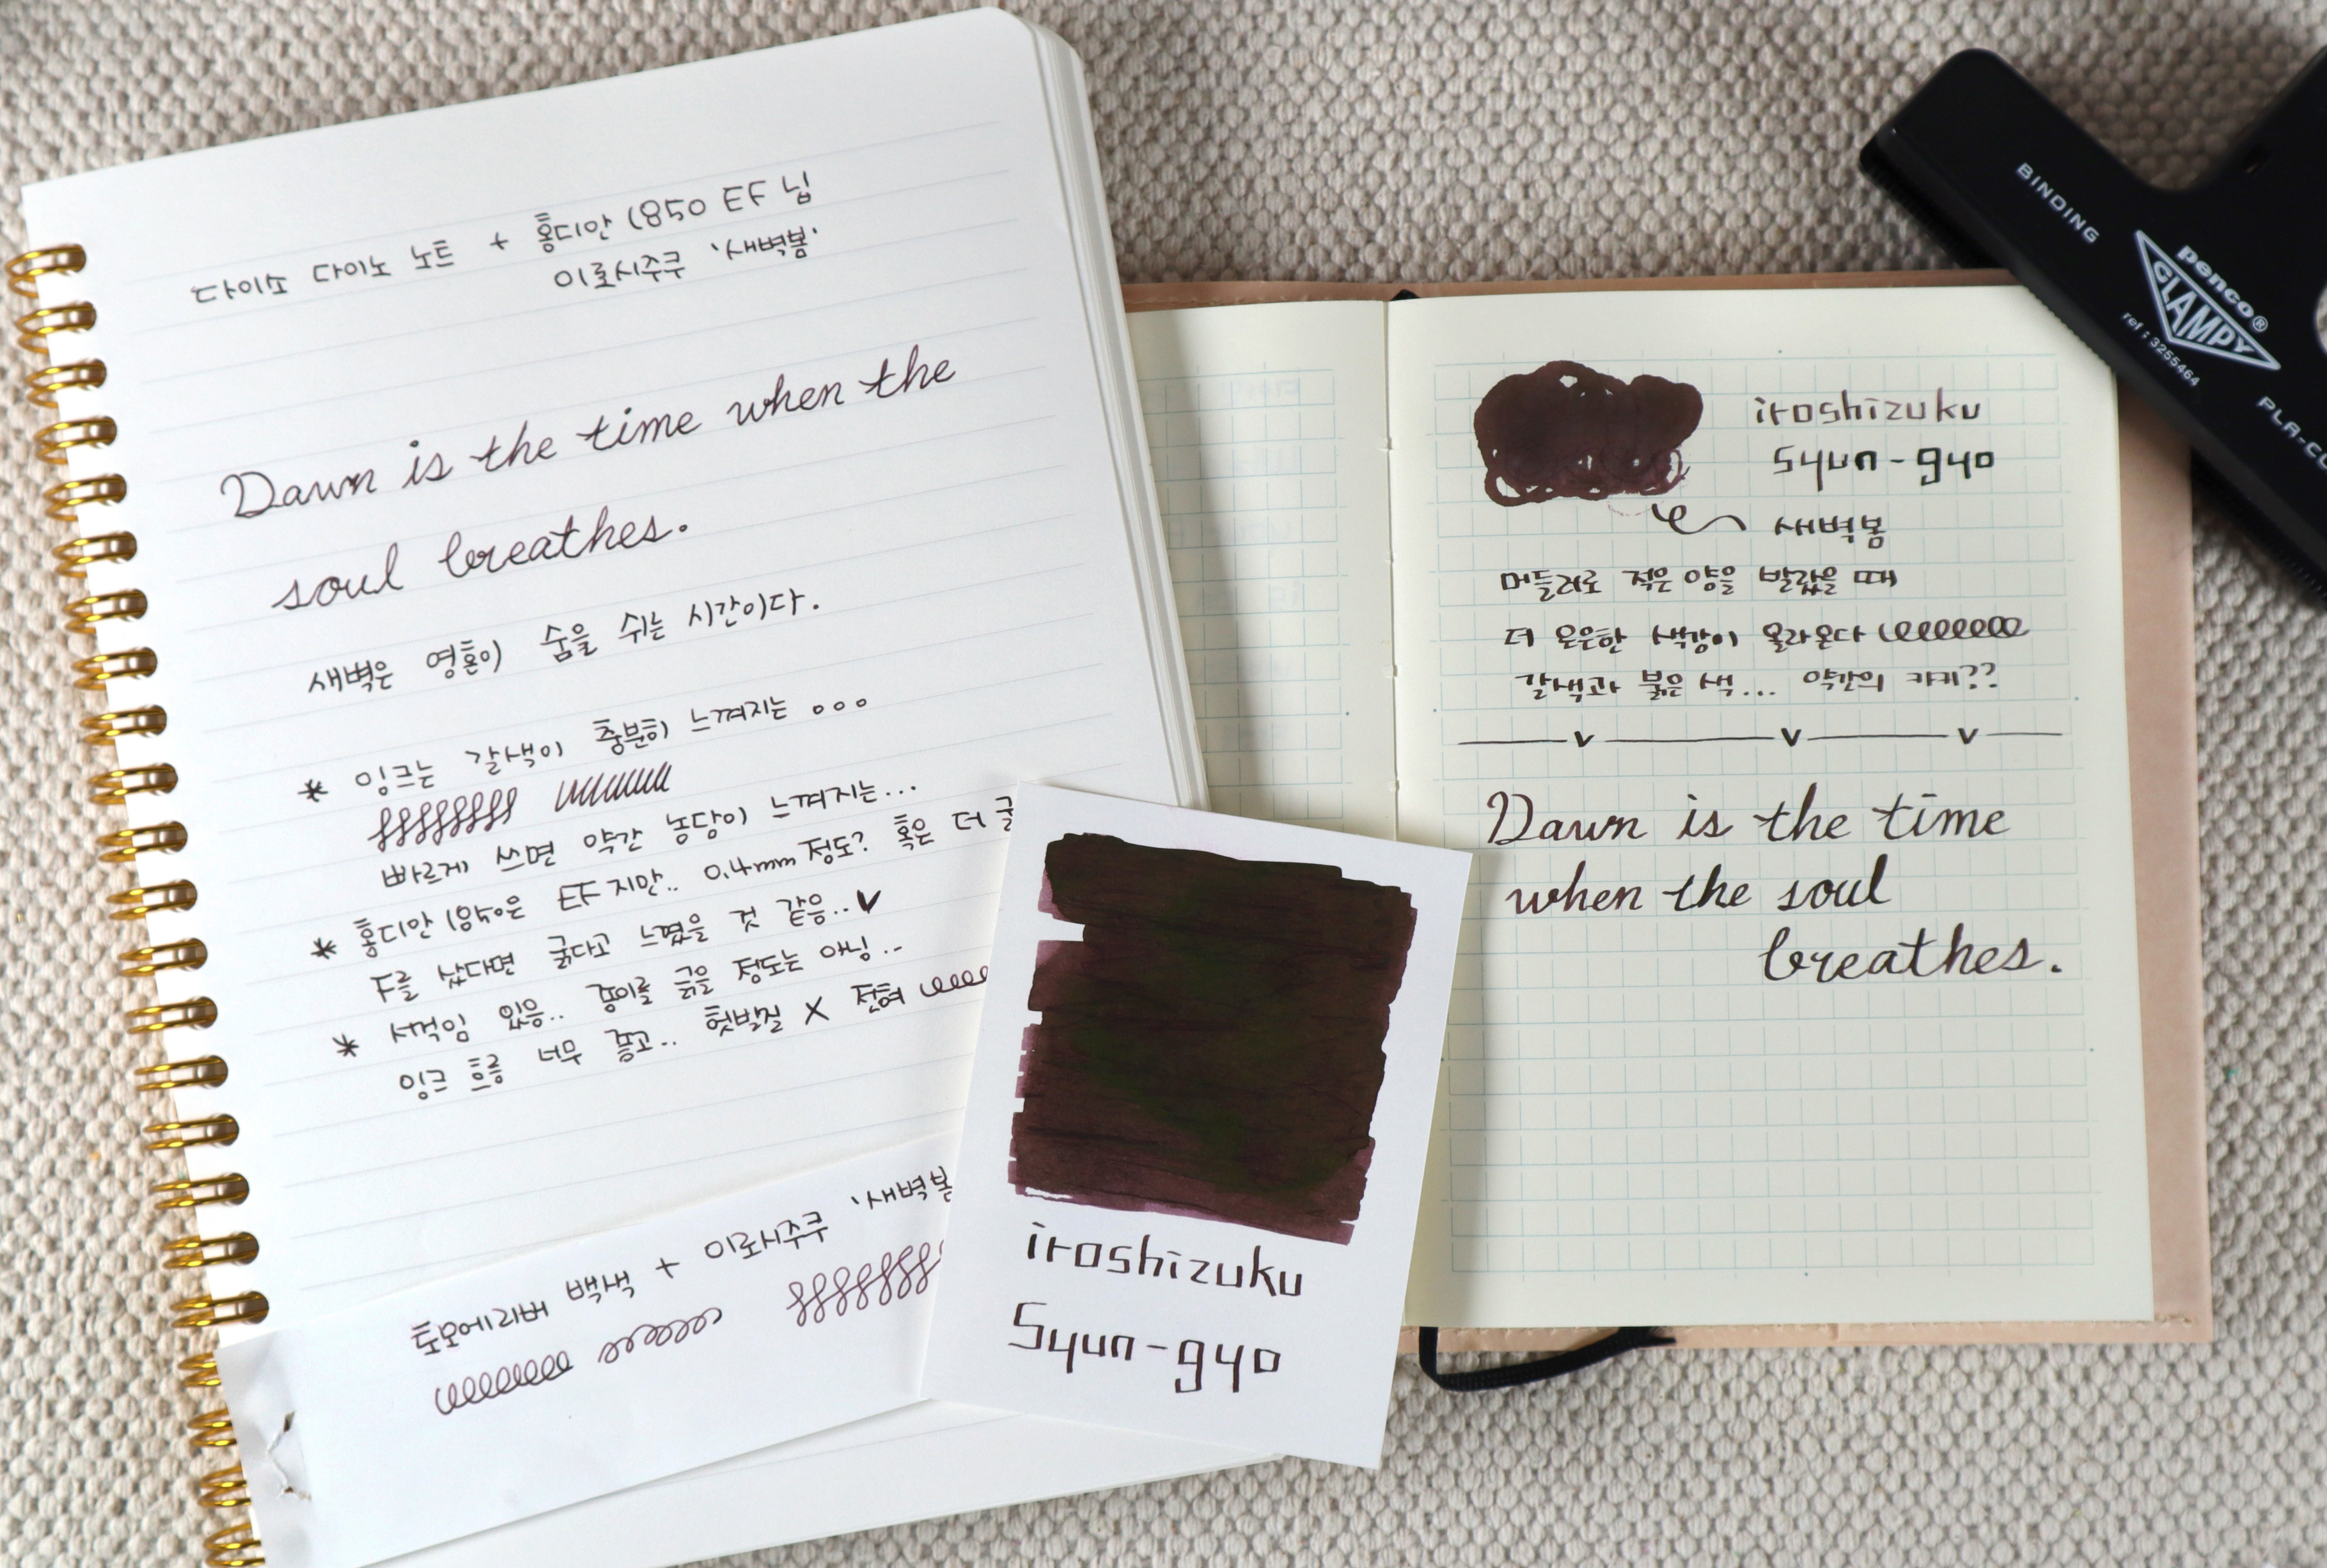 다이소 다이노 노트 + 홍디안 1850 EF 닙
이로시주쿠 '새벽봄'
Dawn is the time when the
soul breathes.
새벽은 영혼이 숨을 쉬는 시간이다.
* 잉크는 갈색이 충분히 느껴지는 ...
빠르게 쓰면 약간 농담이 느껴지는...
* 홍디안 1850은 EF지만.. 0.4mm 정도? 혹은 더 굵
F를 샀다면 굵다고 느꼈을 것 같음..
* 서걱임 있음.. 종이를 긁을 정도는 아님..
잉크 흐름 너무 좋고.. 헛발질 X 전혀
토모에리버 백색 + 이로시주쿠 '새벽봄
iroshizuku
Syun-gyo
iroshizuku
Syun-gyo
새벽봄
머들러로 적은 양을 발랐을 때
더 은은한 색감이 올라온다
갈색과 붉은 색... 약간의 카키??
Dawn is the time
when the soul
breathes.
BINDING
penco®
CLAMPY
ref : 3255464
PLA-CL